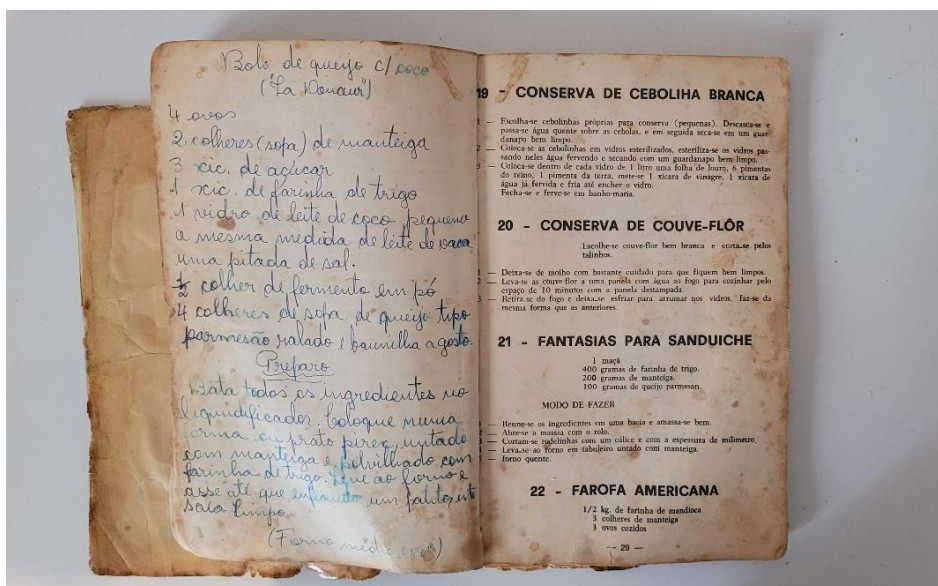 Bolo de queijo c/ coco
4 ovos
2 colheres (sopa) de manteiga
3 xic. de açúcar
1 xic. de farinha de trigo
1 vidro de leite de coco pequeno
a mesma medida de leite de vaca
uma pitada de sal.
½ colher de fermento em pó
4 colheres de sopa de queijo tipo
parmesão ralado e baunilha a gosto.
Preparo
Bata todos os ingredientes no
liquidificador. Coloque numa
forma ou prato pirex, untado
com manteiga e polvilhado com
farinha de trigo. Leve ao forno e
asse até que enfiando um palito, este
saia limpo.
(Forno médio
19 - CONSERVA DE CEBOLIHA BRANCA
1 — Escolha-se cebolinhas próprias para conserva (pequenas). Descasca-se e
passa-se água quente sobre as cebolas, e em seguida seca-se em um guar
danapo bem limpo.
2 — Coloca-se as cebolinhas em vidros esterilizados, esteriliza-se os vidros pas-
sando neles água fervendo e secando com um guardanapo bem limpo.
3 — Coloca-se dentro de cada vidro de 1 litro uma folha de louro, 6 pimentas
do reino, 1 pimenta da terra, mete-se 1 xicara de vinagre, 1 xicara de
água já fervida e fria até encher o vidro.
Fecha-se e ferve-se em banho-maria.
20 - CONSERVA DE COUVE-FLÔR
Escolhe-se couve-flor bem branca e corta-se pelos
talinhos.
1 — Deixa-se de molho com bastante cuidado para que fiquem bem limpos.
2 — Leva-se as couve-flor a uma panela com água ao fogo para cozinhar pelo
espaço de 10 minutos com a panela destampada.
3 — Retira-se do fogo e deixa-se esfriar para arrumar nos vidros, faz-se da
mesma forma que as anteriores.
21 - FANTASIAS PARA SANDUICHE
1 maçã
400 gramas de farinha de trigo.
200 gramas de manteiga.
100 gramas de queijo parmesan.
MODO DE FAZER
— Reune-se os ingredientes em uma bacia e amassa-se bem.
— Abre-se a massa com o rolo.
— Cortam-se rodelinhas com um cálice e com a espessura de milimetro.
— Leva-se ao forno em tabuleiro untado com manteiga.
— forno quente.
22 - FAROFA AMERICANA
1/2 kg. de farinha de mandioca
3 colheres de manteiga
3 ovos cozidos
— 29 —